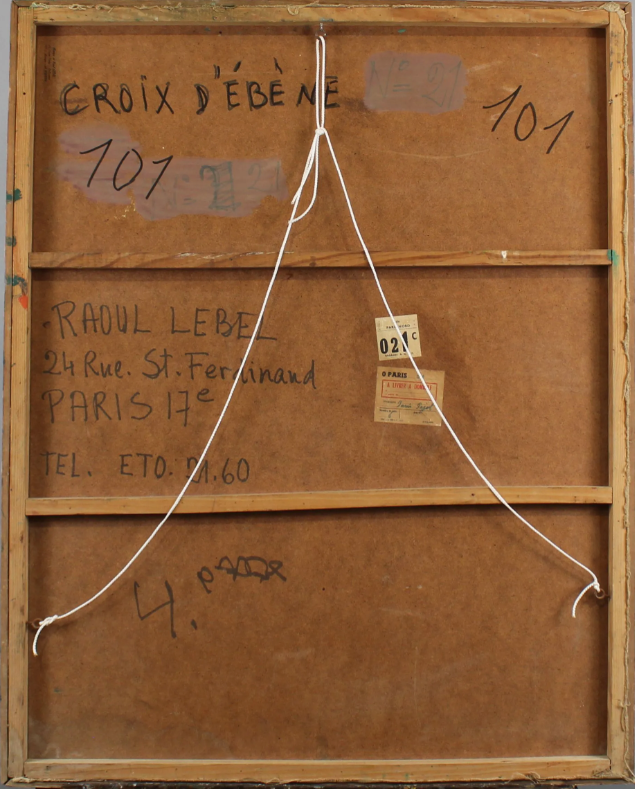 CROIX D'ÉBÈNE
N° 21
101
101
RAOUL LEBEL
24 Rue. St. Ferdinand
PARIS 17e
TEL. ETO. 21.60
021 C
PARIS
4.